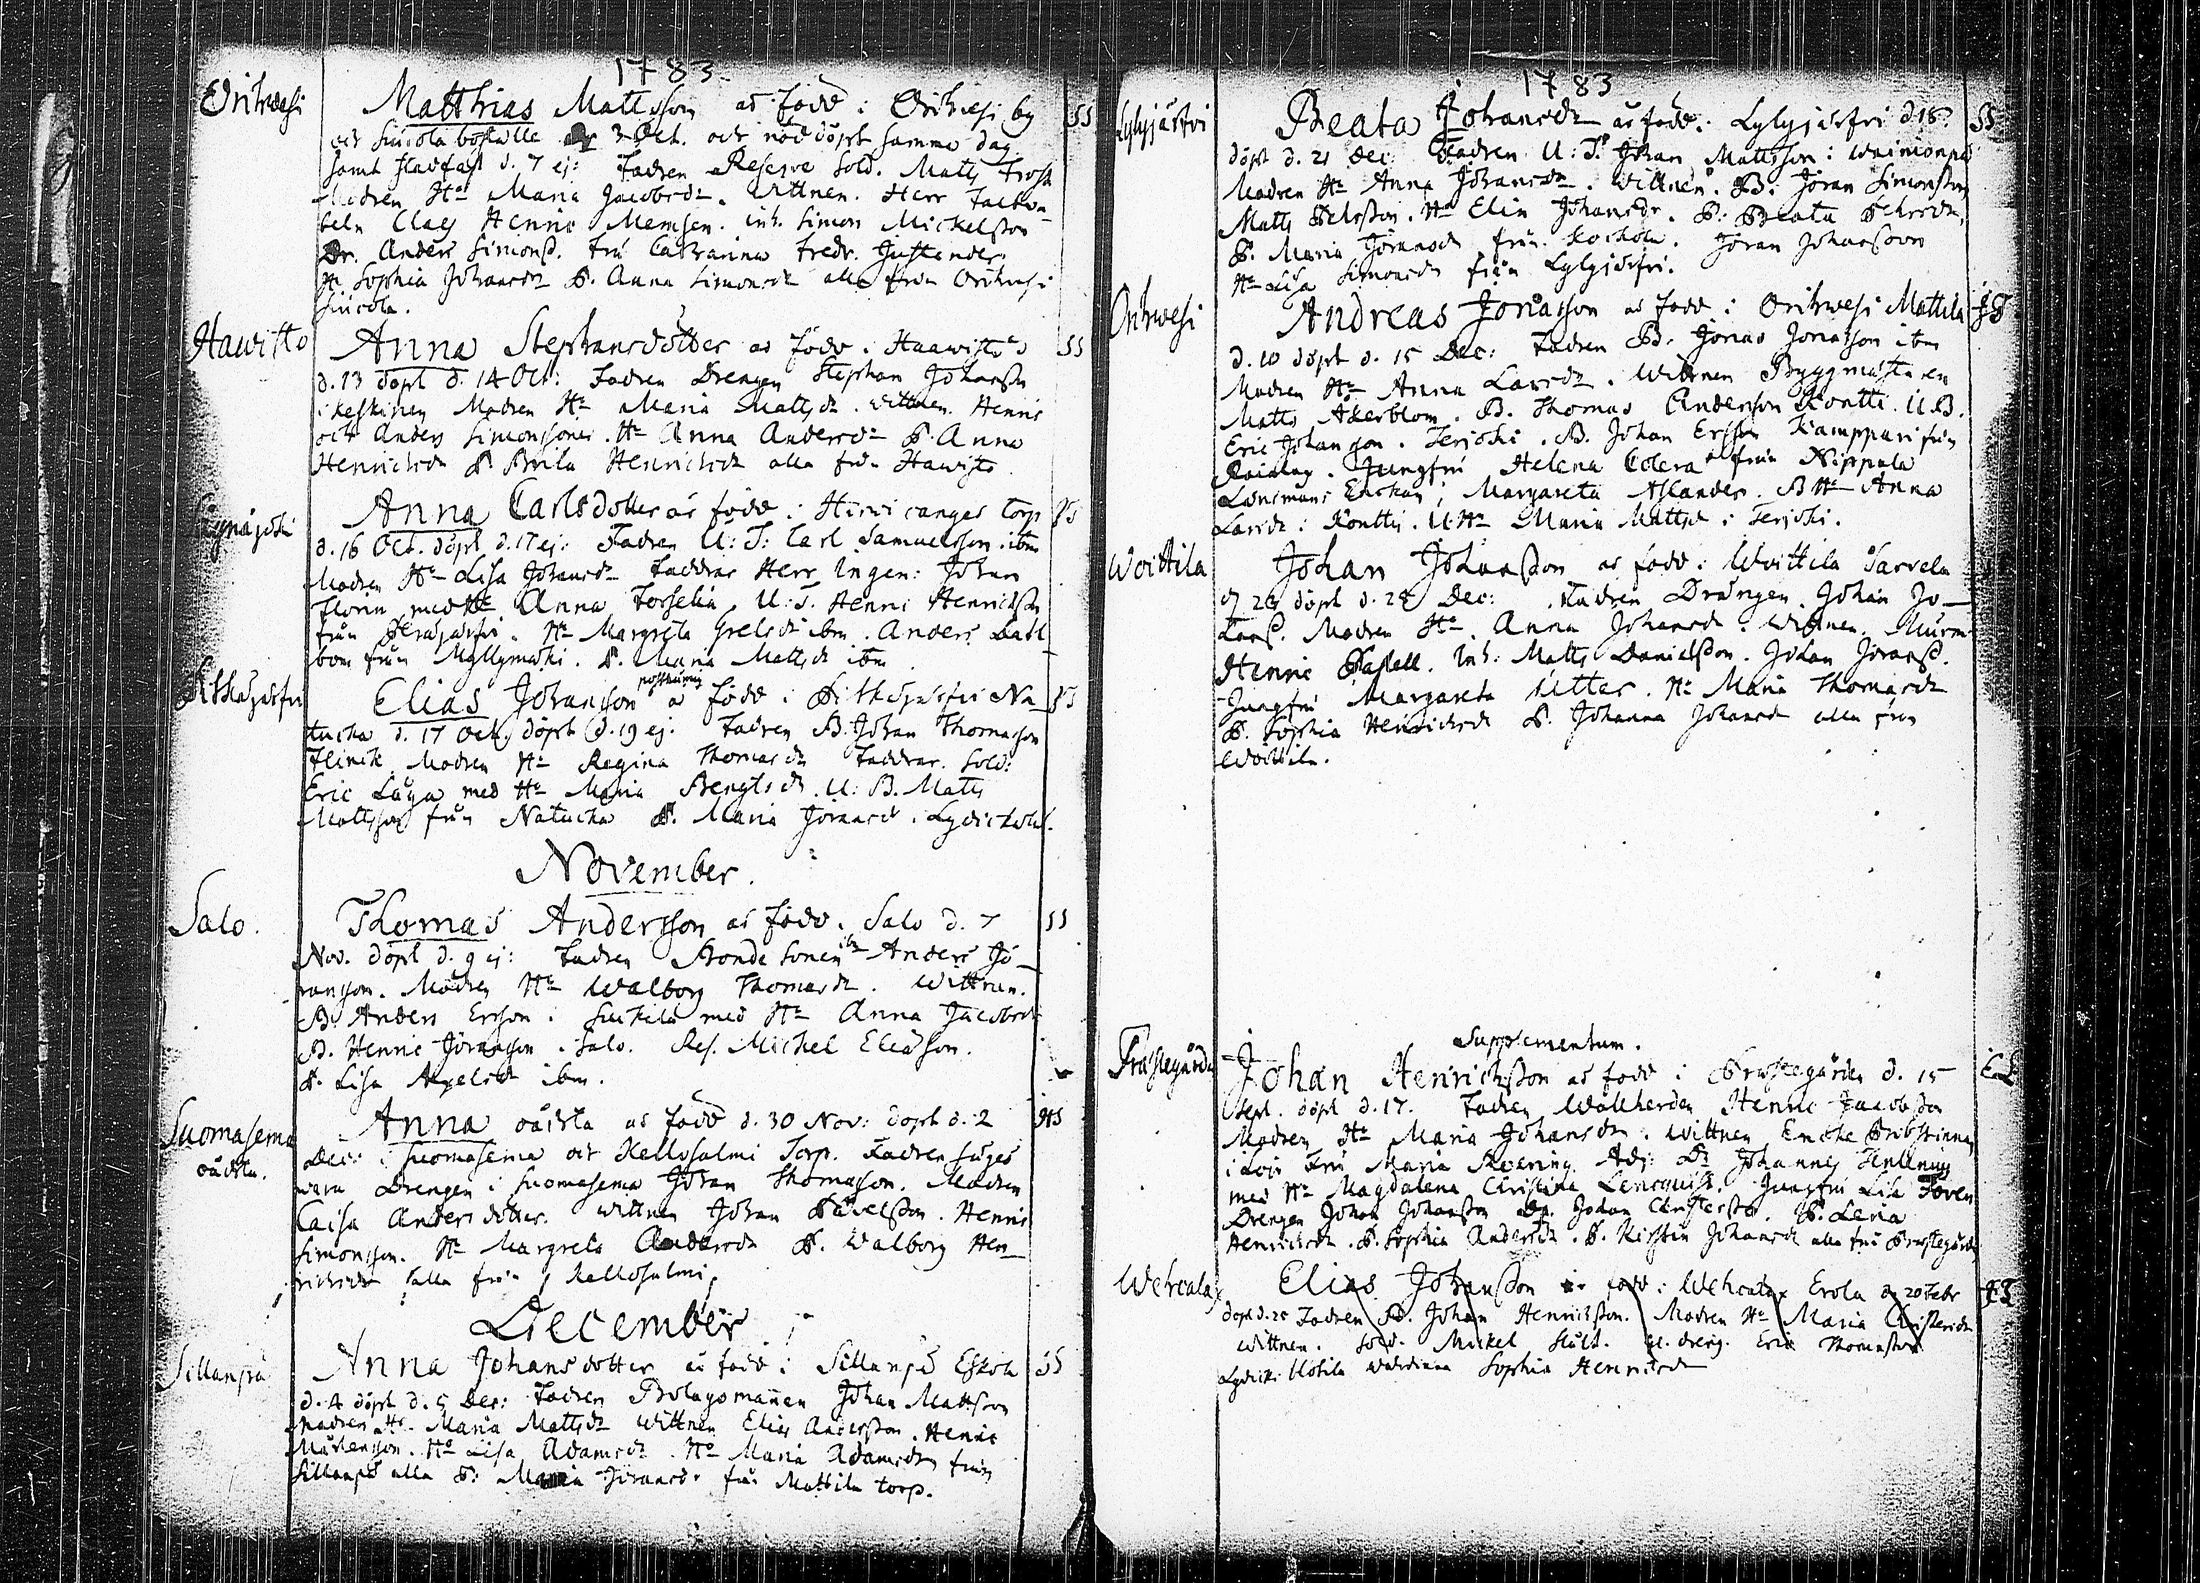 1783
Orihwesi Matthias Mattsson är född i Orihwesi by SS
och Siicola boställe d. 3 Oct. och nöddöpt samma dag
samt stadfäst d. 7 ej: Fadren Reserve Sold. Matts Frosk
Modren Hu Maria Jacobsdr. Wittnen. Herr Fält
Claes Henric Memsen. inh. Simon Mickelsson
Dr. Anders Simonss. Fru Catharina Fredr. Gustander
H. Sophia Johansdr P. Anna Simonsdr alla från Orihwesi
Siicola.
Hawisto Anna Stephansdotter är född i Haawisto SS
d. 13 döpt d. 14 Oct: Fadren Drengen Stephan Johanss
i Keskinen Modren Hu Maria Mattsdr. Wittnen. Henric
och Anders Simonssoner. Hu Anna Andersdr P. Anna
Henricsdr P. Brita Henricsdr alla från Hawisto
Anna Carlsdotter är född i Hirvicangas torp
d. 16 Oct. döpt d. 17 ej: Fadren U: T: Carl Samuelsson ibm
Modren Hu Lisa Johansdr Faddrar Herr Ingen: Johan
Florin med Hu Anna Forselia, U: T. Henric Henricss
från. Hu Margreta Grelsdr ibm. Anders Dahl
bom från Myllymäki. P. Maria Mattsdr ibm.
posthumus
Elias Johansson är född i Pitkäjärfvi Na
tucka d. 17 Oct. döpt d. 19 ej: Fadren B. Johan Thomasson
Flinck Modren Hu Regina Thomasdr Faddrar. Sold:
Eric Låga med Hu Maria Bengtsdr. U: B. Matts
Mattsson från Natucka P. Maria Jöransdr.
November.
Salo. Thomas Andersson är född i Salo d. 7 SS
Nov. döpt d. 9 ej: Fadren Bonde Sonen ibm Anders Jö-
ransson. Modren Hu Walborg Thomasdr. Wittnen.
B. Anders Ersson i med Hu Anna Jacobsdr
B. Henric Jöransson i Salo. Res. Michel Eliasson.
P. Lisa Axelsdr ibm.
Suomasema Anna oäckta är född d. 30 Nov: döpt d. 2
oäckta. Dec: i Suomasema och Kellosalmi Torp. Fadren säges
wara Drengen i Suomasema Johan Thomasson. Modren
Caisa Andersdotter. Wittnen Johan Påvelsson. Henric
Simonsson. Hu Margreta Andersdr P. Walborg Hen
ricsdr alla från Kellosalmi,
December
Sillanpä Anna Johansdotter är född i Sillanpä Eskola SS
d. 4 döpt d. 5 Dec: Fadren Bolagsmannen Johan Mattsson
Modren Hu Maria Mattsdr Wittnen Elias Andersson. Henric
Mårtensson. Hu Lisa Adamsdr. Hu Maria Adamsdr från
Sillanpä alla P: Maria Jöransdr från Mattila torp.
1783
Lylyjärfvi Beata Johansdr är född i Lylyjärfvi d. 18 SS
döpt d. 21 Dec: Fadren U: T. Johan Mattsson i
Modren Hu Anna Johansdr. Wittnen. B. Jöran Simonsson
Matts Pehrsson. Hu Elin Johansdr. P. Beata Pehrsdr,
P. Maria Jöransdr från. Jöran Johansson
Hu Lisa Simonsdr från Lylyjärfvi.
Orihwesi Andreas Jonasson är född i Orihwesi Mattila
d. 10 döpt d. 15 Dec: Fadren B. Jonas Jonasson ibm
Modren Hu Anna Larsdr. Wittnen Byggmästaren
Matts Åkerblom. B. Thomas Andersson Kontti. U. B.
Eric Johansson. Terjoki. B. Johan Ersson Kamppari från
Jungfru Helena Colera från Nippala
Länsmans Enckan, Margareta Aslander. B Hu Anna
Larsdr i Konttis. U: Hu Maria Mattsdr i Terjoki.
Woittila Johan Johansson är född i Woittila Sarvela
döpt d. Dec: Fadren Drängen Johan Jo-
hanss. Modren Hu. Anna Johansdr. Wittnen. Murm.
Henric. Inh: Matts Danielsson. Johan Jöranss.
Jungfru Margareta Utter. Hu Maria Thomasdr
P. Sophia Henricsdr P. Johanna Johansdr alla från
Woittila.
Supplementum.
Prästegården Johan Henricksson är född i Prästegården d. 15 EL
Sept. döpt d. 17. Fadren Wallherden Henric Jacobsson
Modren Hu Maria Johansdr. Wittnen Encke Probstinnan
Fru Maria. Adj: Dn Johannes Hellenius
med Hu Magdalena Christina Lencquist. Jungfru Lisa
Drengen Johan Johansson Dr. Johan Christersson. P. Lena
Henricsdr. P. Sophia Andersdr. P. Kirstin Johansdr alla från Prästegården
Wehcala Elias Johansson är född i Wehcala Erola d. 20 Febr
döpt d. 25 Fadren B. Johan Henricksson. Modren Hu Maria Christersdr
Wittnen. Sold. Mickel Stålt. U. dreng. Eric Thomasson
Sophia Henricsdr